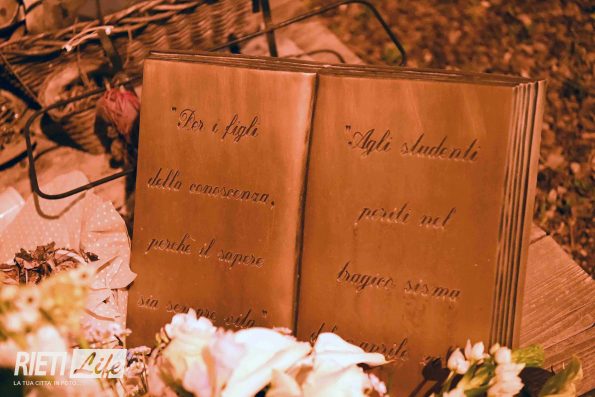 "Per i figli
della conoscenza,
perche il sapere
sia sempre vita"
"Agli studenti
periti nel
tragico sisma
aprile
RIETI Life
LA TUA CITTÀ IN FOTO